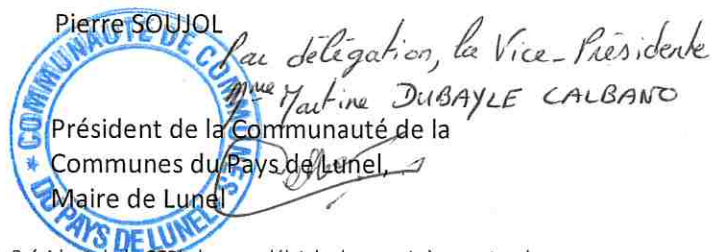 Pierre SOUJOL
Par délégation, la Vice-Présidente
Mme Martine DUBAYLE CALBANO
Président de la Communauté de la
Communes du Pays de Lunel,
Maire de Lunel
COMMUNAUTÉ DE COMMUNES
DU PAYS DE LUNEL